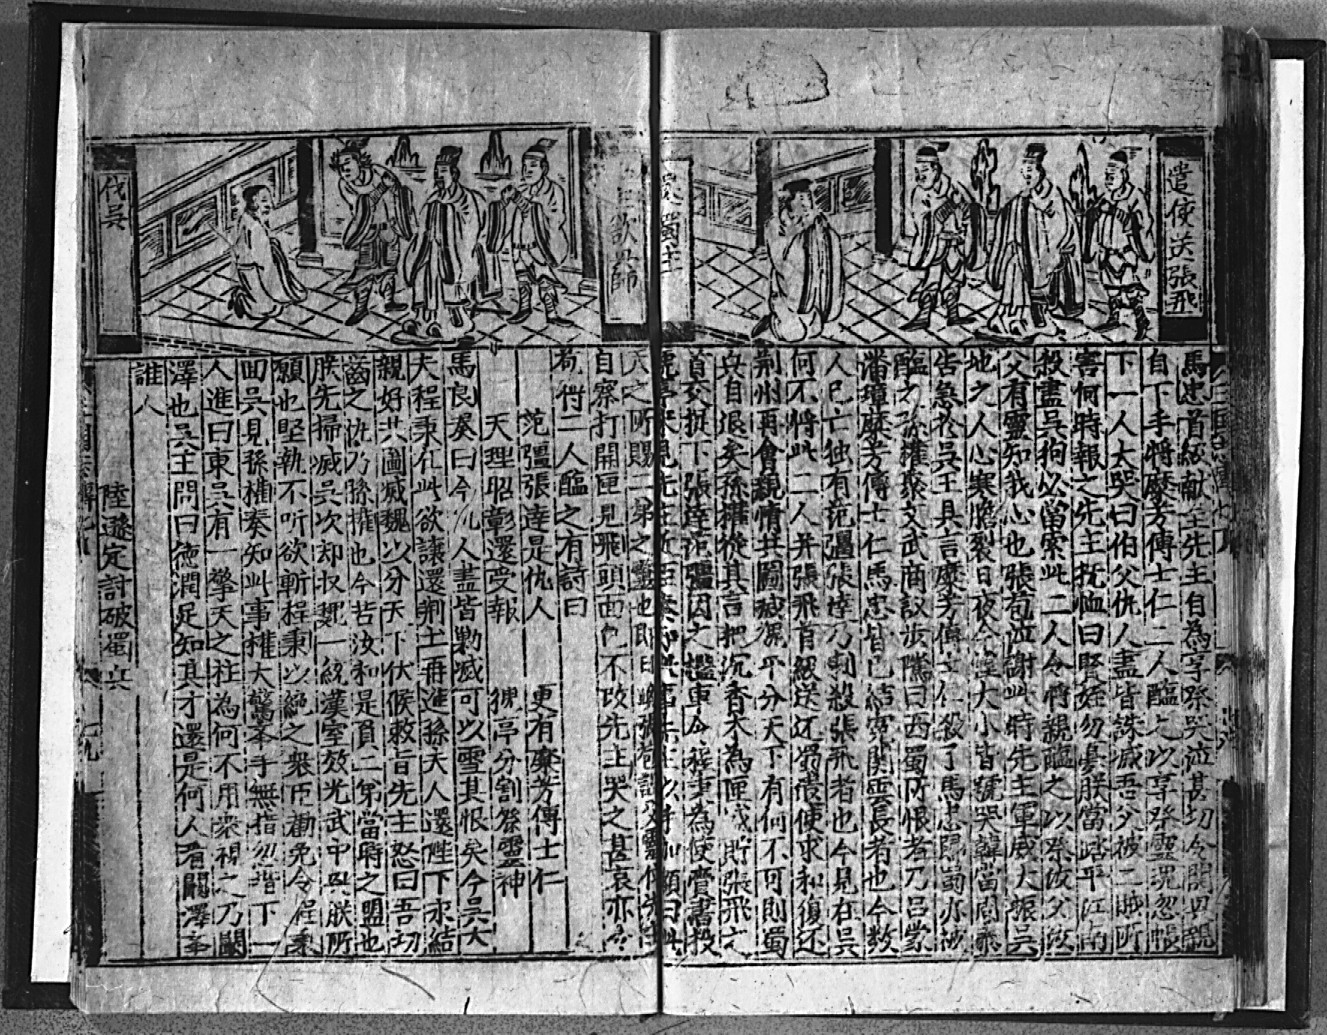 遣使送張飛
馬忠首級献主先主自為享祭哭泣甚切令關興親
自下手將麋芳傅士仁二人醢之以享祭靈魂忽帳
下一人大哭曰伯父仇人盡皆誅滅吾父被二賊所
害何時報之先主抚恤曰賢姪勿憂朕當踏平江南
殺盡吳狗以當索此二人令將親臨之以祭汝父汝
父有靈知我心也張苞泣謝此時先主軍威大振吳
地之人心寒膽裂日夜令大小皆號哭韓當周泰
告急於吳王具言麋芳傅士仁殺了馬忠歸蜀亦
醢之孫權聚文武商議步騭曰西蜀所恨者乃呂蒙
潘璋麋芳傅士仁馬忠皆已結害關雲長者也今数
人已亡独有范彊張達乃刺殺張飛者也今見在吳
何不將此二人并張飛首級送还蜀遣使求和復还
荆州再會親情共圖滅魏平分天下有何不可則蜀
兵自退矣孫權從其言把沉香木為匣貯張飛之
首交挺下張達范彊囚之檻車令程秉為使賫書投
天之所賜二弟之靈也即日
自察打開匣見飛頭面色不改先主哭之甚哀亦令
苞将二人醢之有詩曰
范彊張達是仇人 更有麋芳傅士仁
天理昭彰還受報 猇亭分割祭靈神
馬良奏曰今仇人盡皆勦滅可以雪其恨矣今吳大
夫程秉在此欲讓還荆土再進孫夫人還陛下永結
親好共圖滅魏以分天下伏候敕旨先主怒曰吾切
齒之仇乃孫權也今若汝和是負二弟當時之盟也
朕先掃滅吳次却収魏一統漢室效光武中興朕所
願也堅執不听欲斬程秉以絶之衆臣勸免令程秉
回吳見孫權奏知此事權大驚拳手無指忽階下一
人進曰東吳有一擎天之柱為何不用衆視之乃闞
澤也吳主問曰德潤足知其才還是何人看闞澤奉
誰人
陸遜定討破蜀兵
伐吳